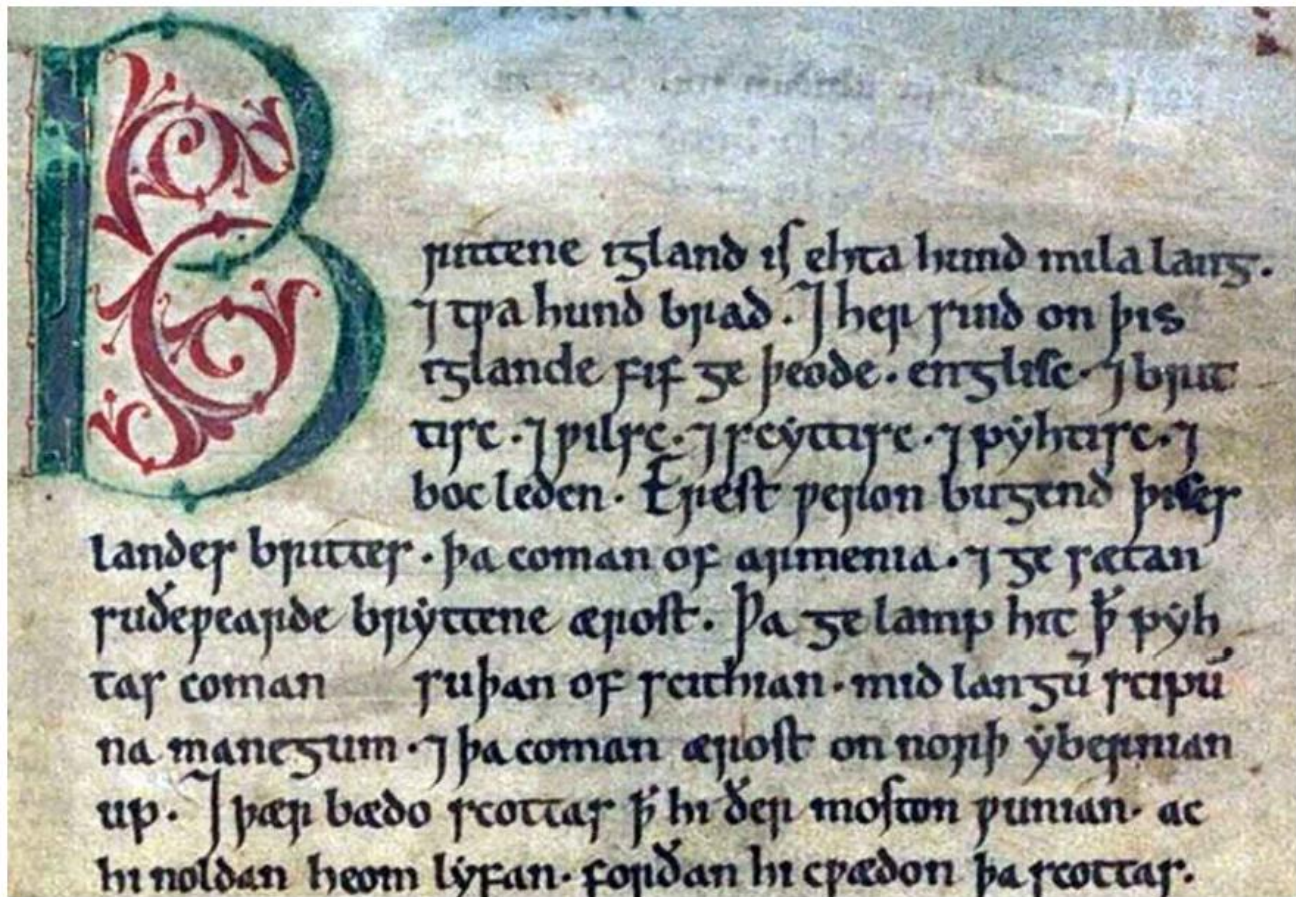 Brittene iȝland iſ ehta hund mila lanȝ.
⁊ tƿa hund brad. ⁊ her sind on þis
iȝlande fif ȝe þeode. enȝliſc. ⁊ brit
tisc. ⁊ ƿilsc. ⁊ scẏttisc. ⁊ pẏhtisc. ⁊
boc leden. Ereſt ƿeron buȝend þiſeſ
landes brittes. þa coman of armenia. ⁊ ȝe sætan
suðeƿearde brẏttene æroſt. Þa ȝe lamp hit ꝥ pẏh
tas coman suþan of scithian. mid lanȝū scipū
na maneȝum. ⁊ þa coman æroſt on norþ ẏbernian
up. ⁊ þær bædo scottas ꝥ hi ðer moſton ƿunian. ac
hi noldan heom lẏfan. forðan hi cƿædon þa scottas.